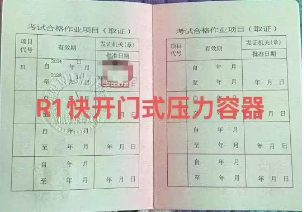 考试合格作业项目（取证）
项目代号 有效期 发证机关(章) 批准日期
自 年 月
至 年 月 年 月 日
自 年 月
至 年 月 年 月 日
自 年 月
至 年 月 年 月 日
考试合格作业项目（取证）
项目代号 有效期 发证机关(章) 批准日期
自 年 月
至 年 月 年 月 日
自 年 月
至 年 月 年 月 日
自 年 月
至 年 月 年 月 日
自 年 月
至 年 月 年 月 日
R1快开门式压力容器